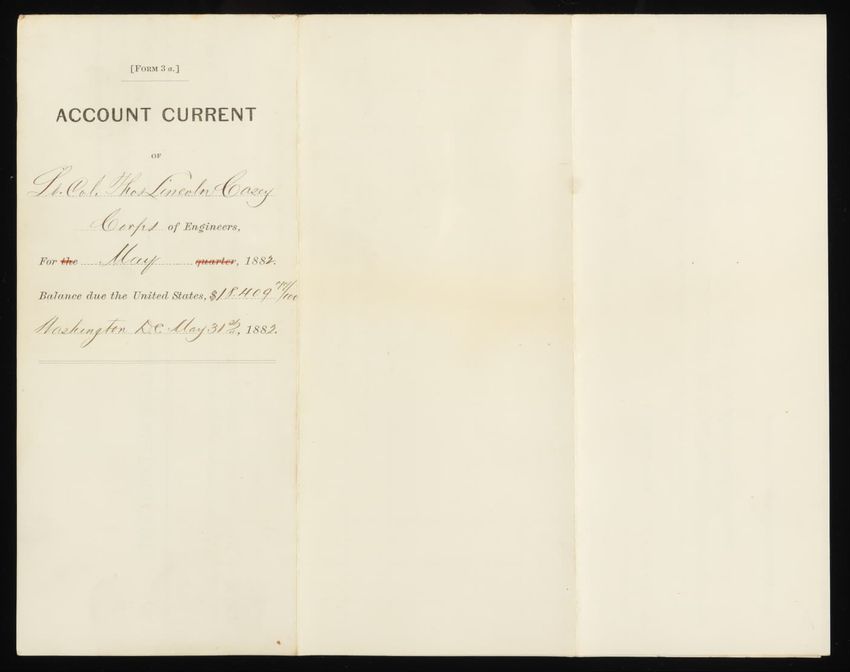 [FORM 3 a.]
ACCOUNT CURRENT
OF
Lt. Col. Thos Lincoln Casey
Corps of Engineers,
For the May quarter, 1882.
Balance due the United States, $18.409
Washington D.C. May 31st, 1882.